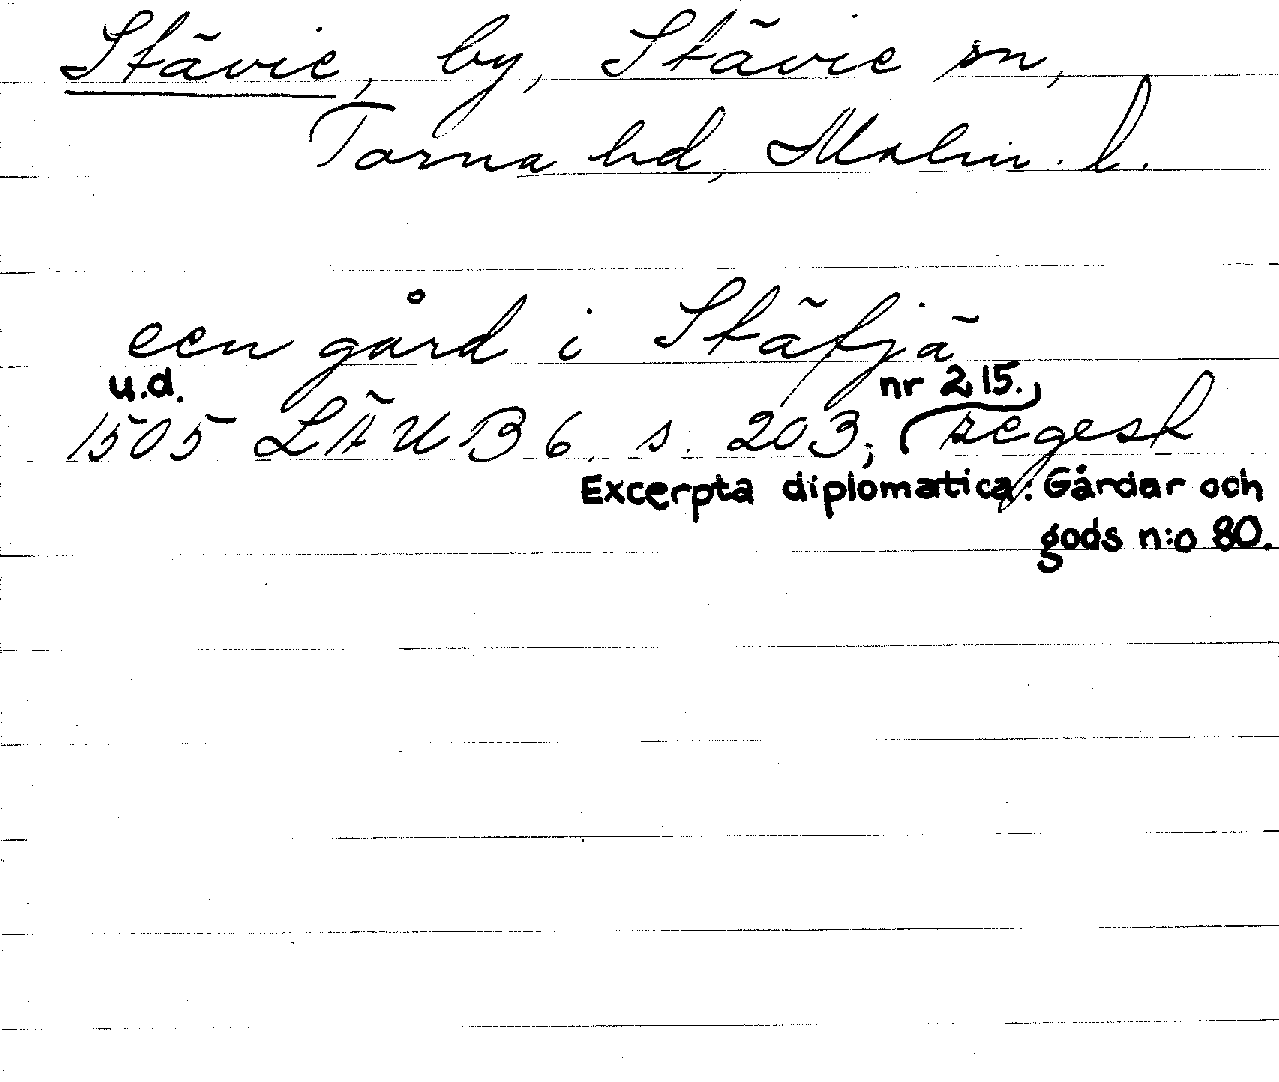 Stävie, by, Stävie sn,
Torna hd, Malm. l.
een gård i Stäfjä
u.d. nr 215.
1505 LÄUB 6. s. 203; regest
Excerpta diplomatica: Gårdar och
gods n:o 80.